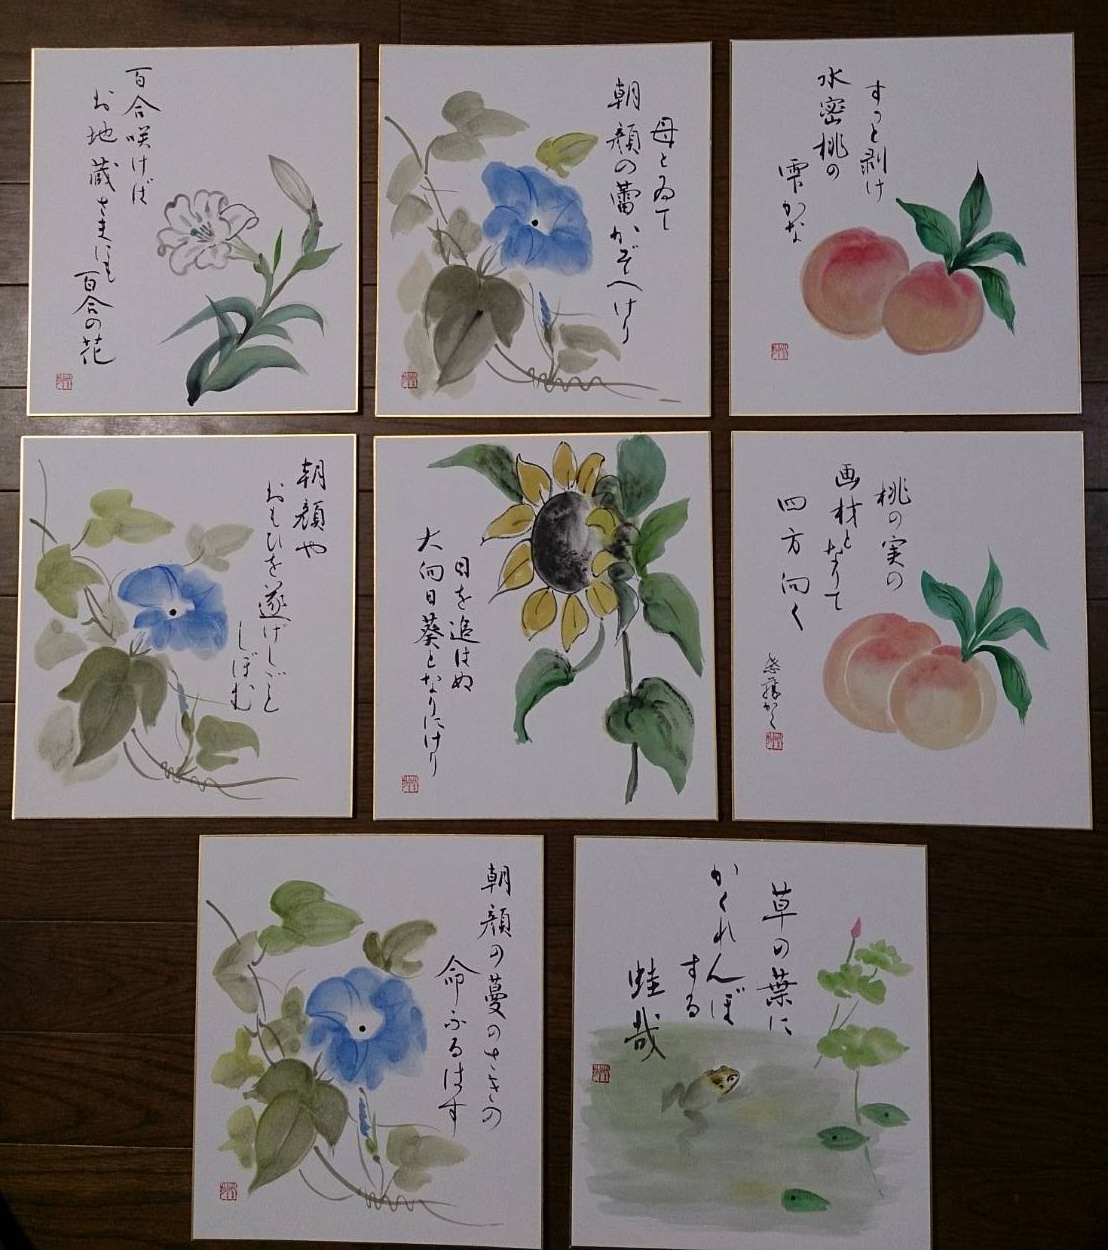 百合咲けば
お地蔵さまにも
百合の花
母とゐて
朝顔の蕾かぞへけり
すつと剥け
水密桃の
雫かな
朝顔や
おもひを遂げしごと
しぼむ
日を追はぬ
大向日葵となりにけり
桃の実の
画材となりて
四方向く
朝顔の蔓のさきの
命ふるはす
草の葉に
かくれんぼ
する
蛙哉